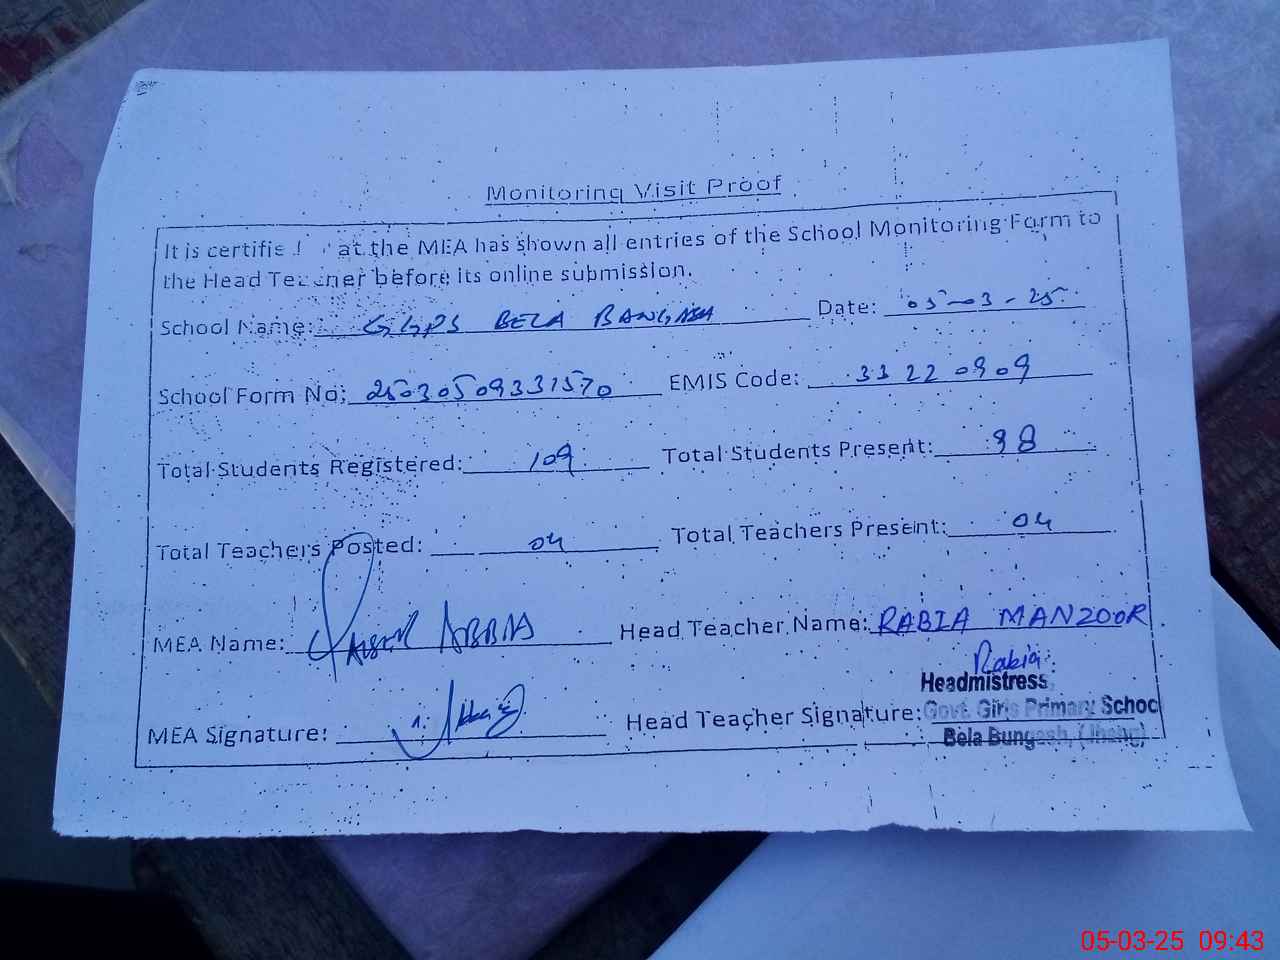 Monitoring Visit Proof
It is certifie at the MEA has shown all entries of the School Monitoring Form to
the Head Teacher before its online submission.
School Name: GGPS BELA BANGASH Date: 05-03-25
School Form No: 25030509331570 EMIS Code: 33220909
Total Students Registered: 109 Total Students Present: 98
Total Teachers Posted: 04 Total Teachers Present: 04
MEA Name: ABBAS Head Teacher Name: RABIA MANZOOR
Rabia
Headmistress
MEA Signature: Head Teacher Signature: Govt. Girls Primary School
Bela Bungash, (Jhang)
05-03-25 09:43